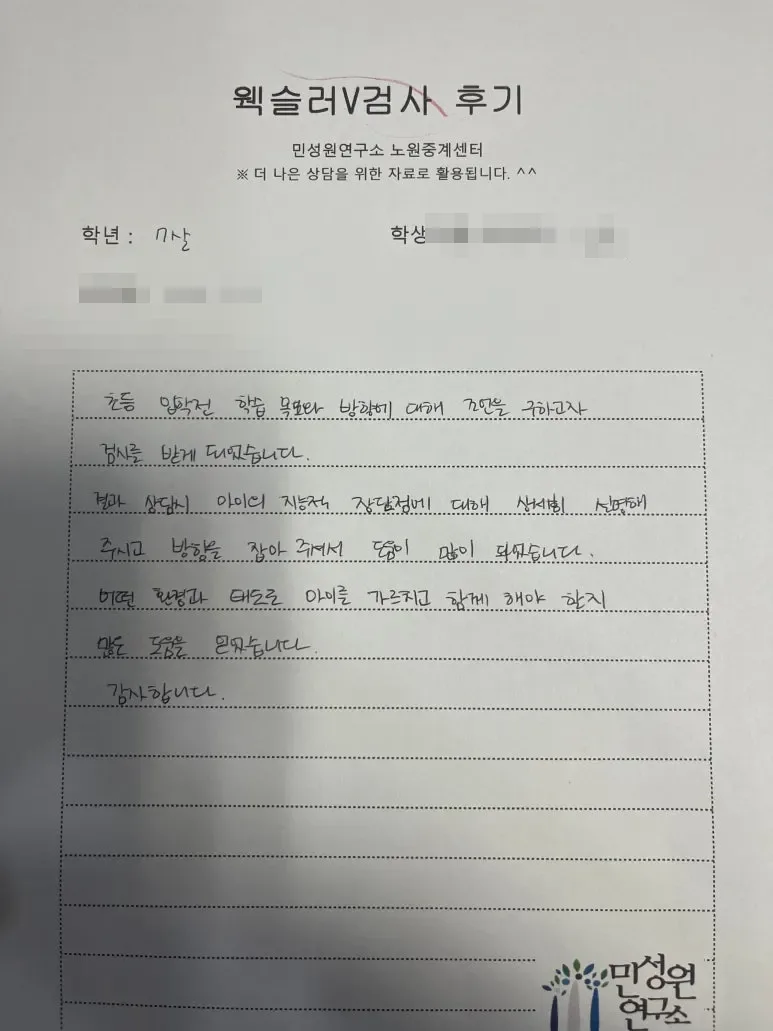 웩슬러V검사 후기
민성원연구소 노원중계센터
※ 더 나은 상담을 위한 자료로 활용됩니다. ^^
학년 : 7살 학생
초등 입학전 학습 목표와 방향에 대해 조언을 구하고자
검사를 받게 되었습니다.
결과 상담시 아이의 지능적 장단점에 대해 상세히 설명해
주시고 방향을 잡아 주셔서 도움이 많이 되었습니다.
어떤 환경과 태도로 아이를 가르치고 함께 해야 할지
많은 도움을 받았습니다.
감사합니다.
민성원
연구소